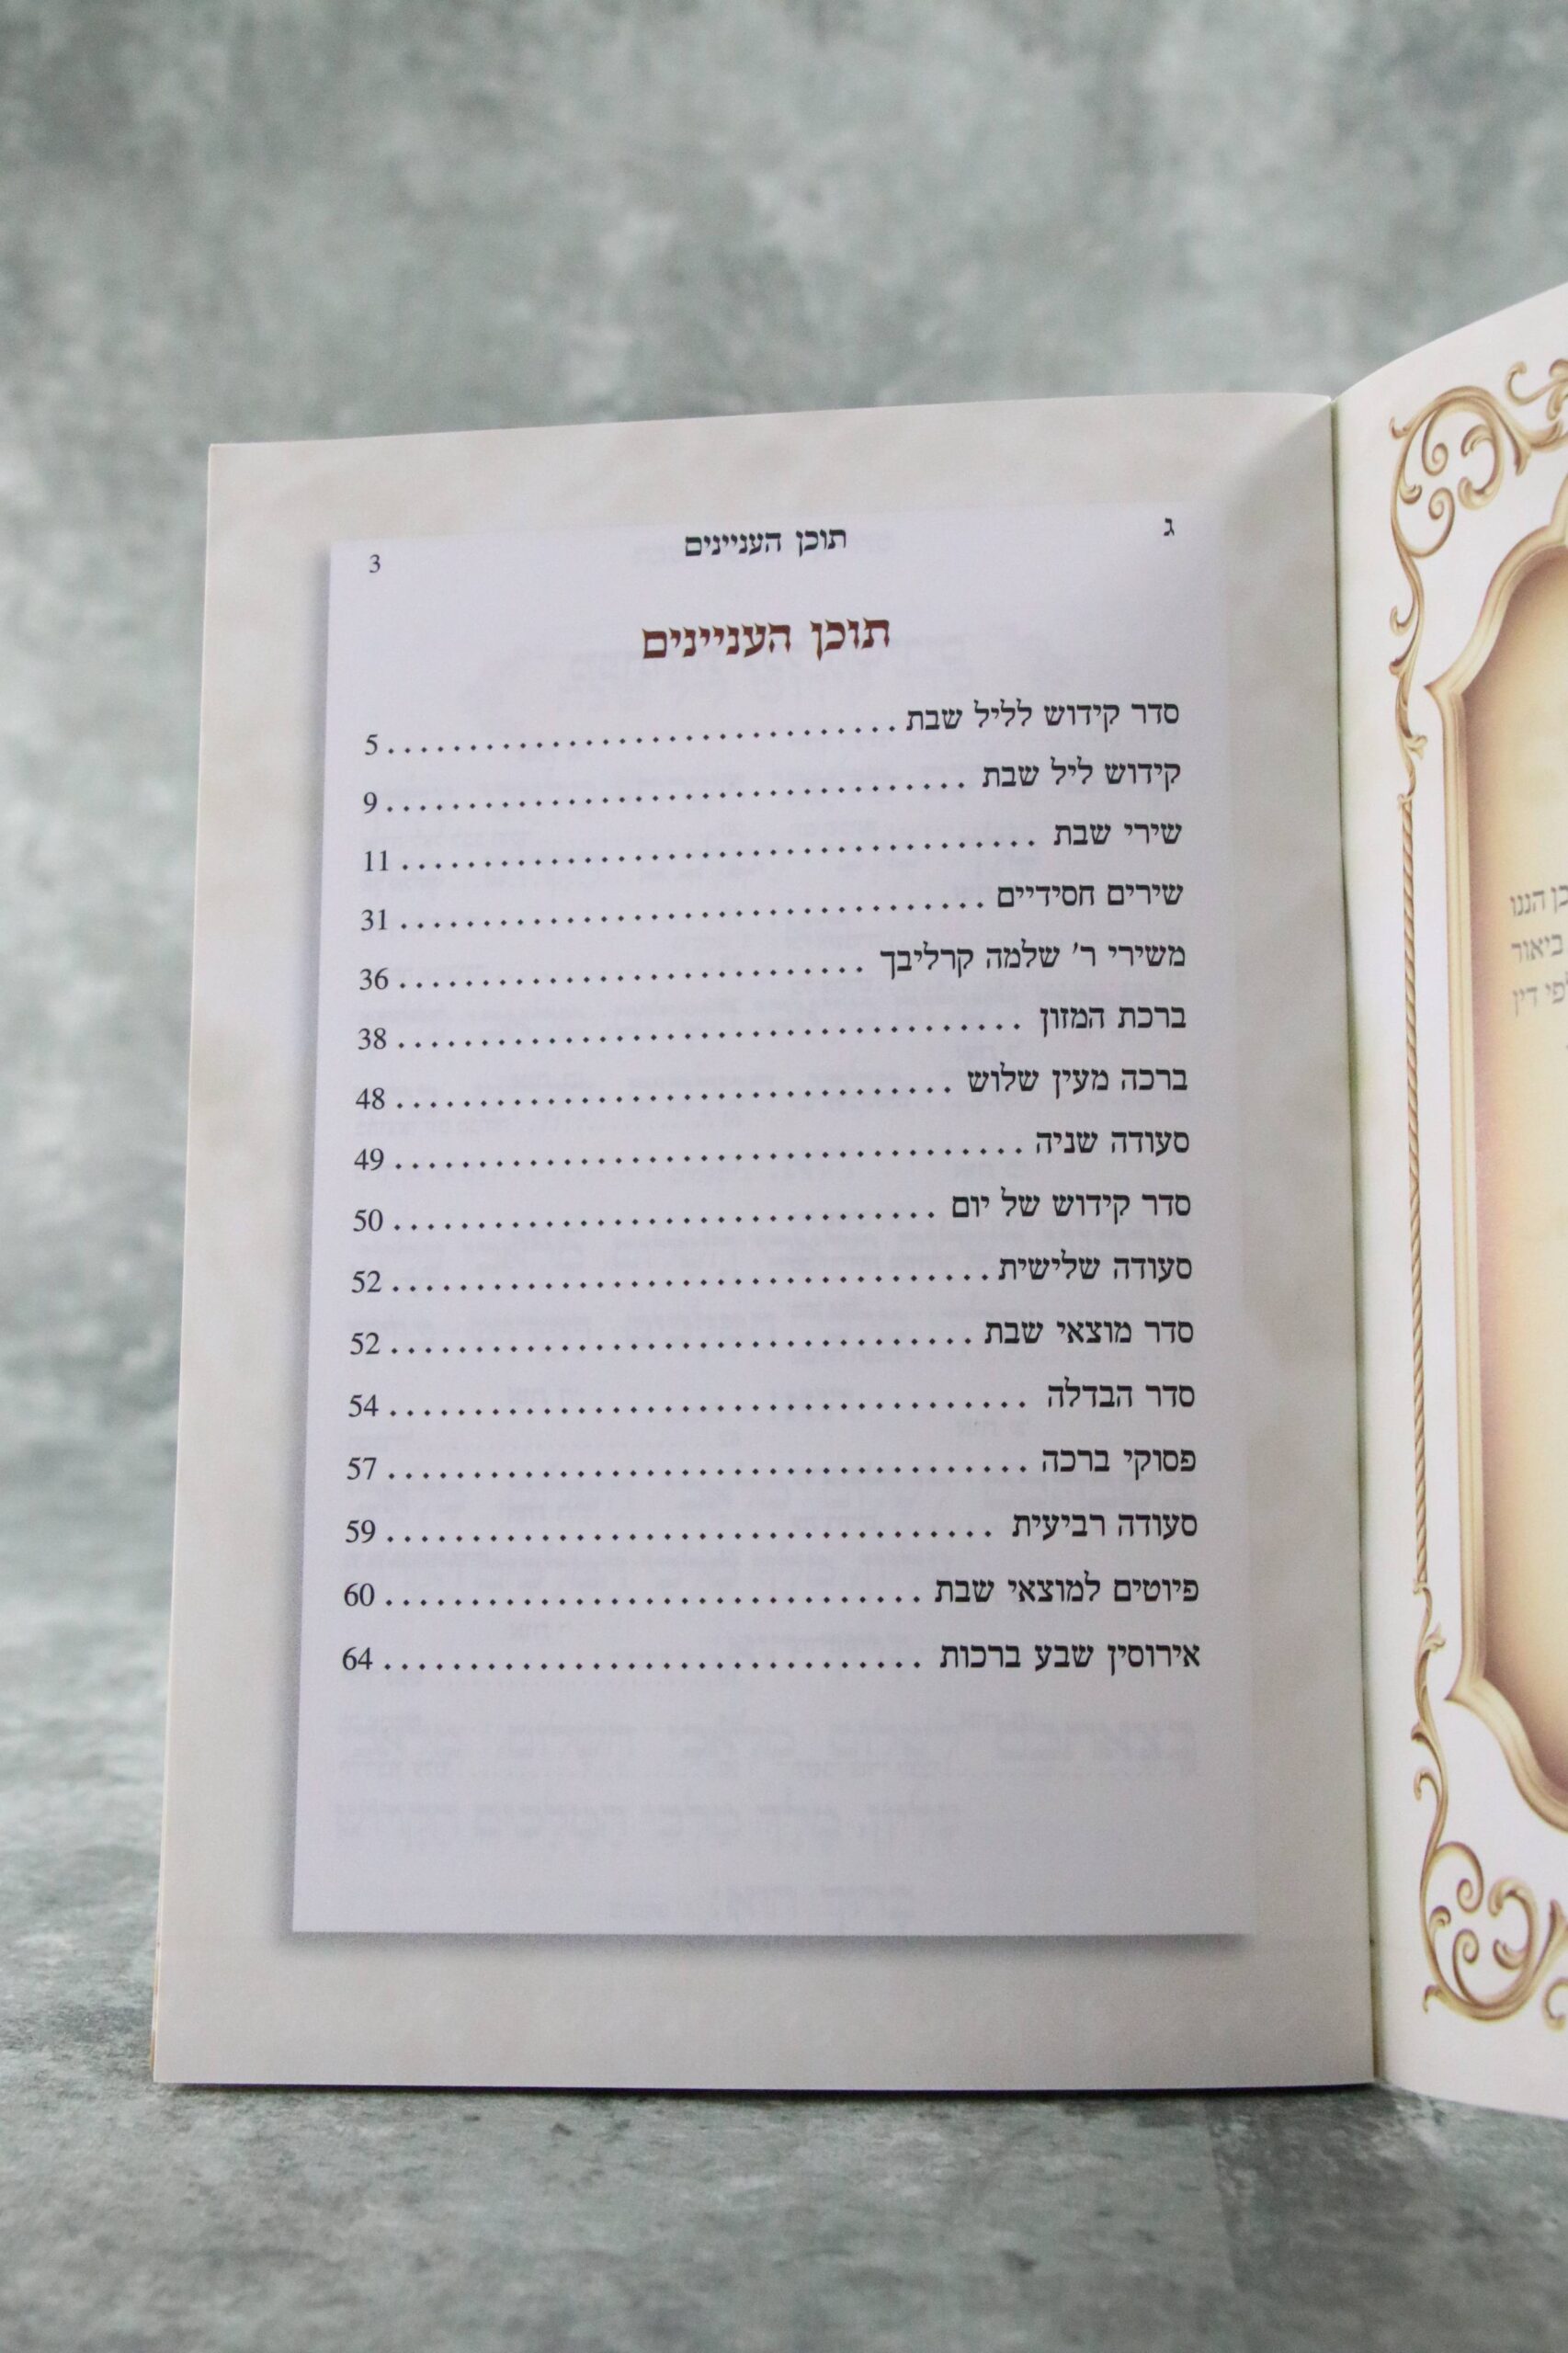 ג תוכן העניינים 3
תוכן העניינים
סדר קידוש לליל שבת 5
קידוש ליל שבת 9
שירי שבת 11
שירים חסידיים 31
משירי ר' שלמה קרליבך 36
ברכת המזון 38
ברכה מעין שלוש 48
סעודה שניה 49
סדר קידוש של יום 50
סעודה שלישית 52
סדר מוצאי שבת 52
סדר הבדלה 54
פסוקי ברכה 57
סעודה רביעית 59
פיוטים למוצאי שבת 60
אירוסין שבע ברכות 64
הננו
ביאור
דין